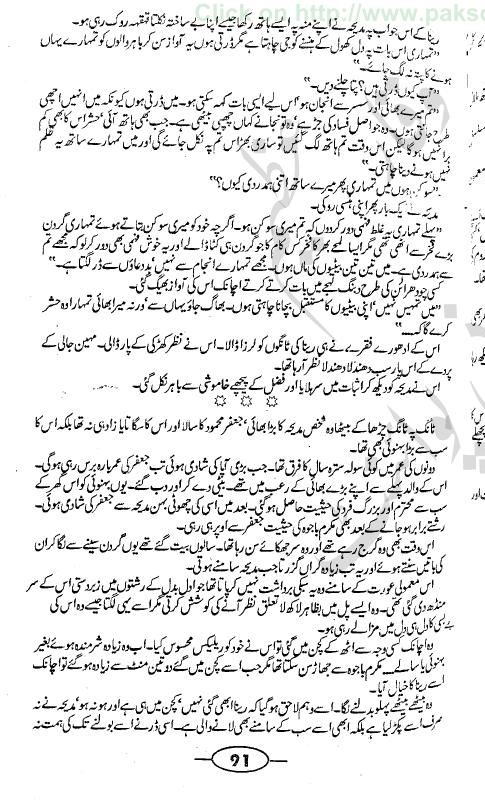 Click on http://www.paks
رینا کے اس جواب پہ مدیحہ نے اپنے منہ پہ ایسے ہاتھ رکھا جیسے اپنا بے ساختہ نکلتا قہقہہ روک رہی ہو۔
"تمہاری اس بات پہ دل کھول کے ہنسنے کو جی چاہتا ہے مگر ڈرتی ہوں یہ آواز سن کر باہر والوں کو تمہارے یہاں
ہونے کا پتہ نہ لگ جائے۔"
"تم کیوں ڈرتی ہیں؟ پتا چلنے دیں۔"
"تم میرے بھائی اور سسر سے انجان ہو اس لیے ایسی بات کہہ سکتی ہو۔ میں ڈرتی ہوں کیونکہ میں انہیں اچھی
طرح جانتی ہوں۔ وہ جو اصل فساد کی جڑ ہے وہ تو نجانے کہاں چھپی بیٹھی ہے۔ جب بھی ہاتھ آئی حشر اس کا بھی کم
برا نہیں ہو گا لیکن اس وقت تم ہاتھ لگ گئیں تو ساری بھڑاس تم پہ نکل جائے گی اور میں تمہارے ساتھ یہ ظلم
نہیں ہونے دینا چاہتی۔"
"سوکن ہوں میں تمہاری پھر میرے ساتھ اتنی ہمدردی کیوں؟"
مدیحہ نے ایک بار پھر اپنی ہنسی روکی۔
"پہلے تمہاری یہ غلط فہمی دور کر دوں کہ تم میری سوکن ہو۔ اگرچہ خود کو میری سوکن بتاتے ہوئے تمہاری گردن
بڑے فخر سے اٹھی تھی مگر ایسا لمحے بھر کا فخر کس کام کا جو گردن ہی کٹوا ڈالے اور یہ خوش فہمی بھی دور کر لو کہ مجھے تم
سے ہمدردی ہے۔ میں تین تین بیٹیوں کی ماں ہوں۔ مجھے تمہارے انجام سے نہیں بددعاؤں سے ڈر لگتا ہے۔"
کسی چودھرائن کی طرح دبنگ لہجے میں بات کرتے کرتے اچانک اس کی آواز بھیگ گئی۔
"میں تمہیں نہیں اپنی بیٹیوں کا مستقبل بچانا چاہتی ہوں۔ بھاگ جاؤ یہاں سے ورنہ میرا بھائی تمہارا وہ حشر
کرے گا کہ ....."
اس کے ادھورے فقرے نے ہی رینا کی ٹانگوں کو لرزا ڈالا۔ اس نے نظر کھڑکی کے پار ڈالی۔ مہین جالی کے
پردے کے اس پار سب دھندلا دھندلا نظر آ رہا تھا۔
اس نے مدیحہ کو دیکھ کر اثبات میں سر ہلایا اور فضل کے پیچھے خاموشی سے باہر نکل گئی۔
ٹانگ پہ ٹانگ چڑھا کے بیٹھا وہ شخص مدیحہ کا بڑا بھائی، جعفر محمود کا سالا اور اس کا سگا تایا زاد ہی نہ تھا بلکہ اس کا
سب سے بڑا بہنوئی بھی تھا۔
دونوں کی عمر میں کوئی سولہ سترہ سال کا فرق تھا۔ جب بڑی آپا کی شادی ہوئی تب جعفر کی عمر بارہ برس رہی ہو گی۔
اس کے والد پہلے سے اپنے بڑے بھائی کے رعب میں تھے۔ بیٹی دے کر اور دب گئے۔ یوں بہنوئی کو اس گھر کے
سب سے محترم اور بزرگ فرد کی حیثیت حاصل ہو گئی۔ بعد میں اسی کی چھوٹی بہن مدیحہ سے جعفر کی شادی ہوئی۔
رشتے برابر ہو جانے کے بعد بھی مکرم باجوہ کی حیثیت جعفر سے اوپر ہی رہی۔
اس وقت بھی وہ گرج رہے تھے اور وہ سر جھکائے سن رہا تھا۔ سالوں بیت گئے تھے یوں گردن سینے سے لگا کر ان
کی باتیں سنتے ہوئے اور یہ تب زیادہ گراں گزرتا جب مدیحہ سامنے ہوتی۔
اس معمولی عورت کے سامنے وہ یہ سبکی برداشت نہیں کر پاتا تھا جو ادل بدل کے رشتوں میں زبردستی اس کے سر
منڈھ دی گئی تھی۔ وہ ایسے پل میں بظاہر لاکھ لا تعلق نظر آنے کی کوشش کرتی مگر اسے یہی لگتا جیسے وہ اس کی
بے بسی کا دل ہی دل میں مزا لے رہی ہو۔
وہ اچانک کسی وجہ سے اٹھ کے کچن میں گئی تو اس نے خود کو ریلیکس محسوس کیا۔ اب وہ زیادہ شرمندہ ہوئے بغیر
بہنوئی یا سالے .... مکرم باجوہ سے جھاڑ سن سکتا تھا مگر جب اسے کچن میں گئے دو تین منٹ سے زیادہ ہو گئے تو اچانک
اسے رینا کا خیال آیا۔
وہ بیٹھے بیٹھے پہلو بدلنے لگا۔ اسے وہم لاحق ہو گیا کہ رینا ابھی گئی نہیں، کچن میں ہی ہے اور ہو نہ ہو مدیحہ نے نہ
صرف اسے پکڑ لیا ہے بلکہ ابھی اسے سب کے سامنے بھی لانے والی ہے۔ اسی ڈر نے اسے بولنے تک کی ہمت نہ
91